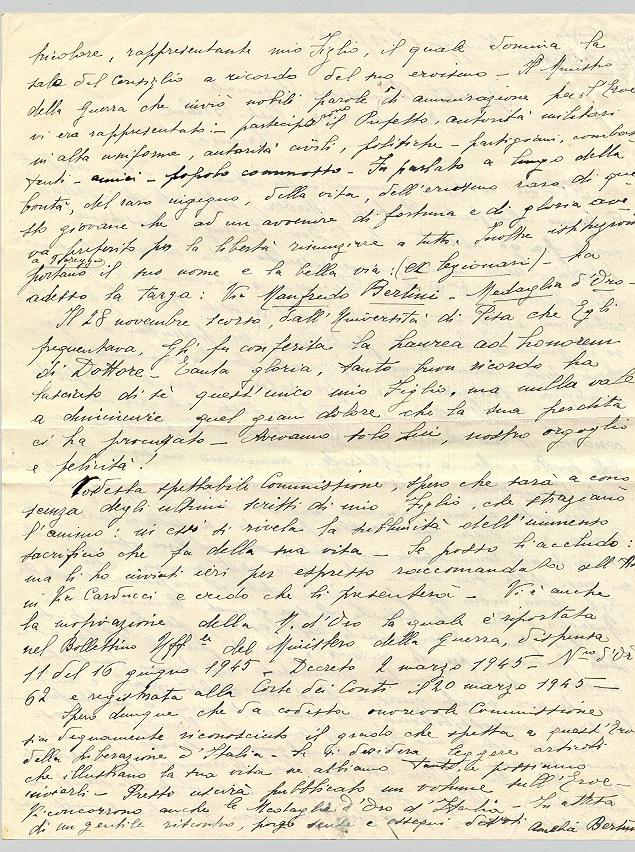 tricolore, rappresentante mio Figlio, il quale domina la
sala del Consiglio a ricordo del suo eroismo – Il Ministro
della Guerra che inviò nobili parole di ammirazione per l'Eroe
vi era rappresentato – parteciparono il Prefetto, autorità militari
in alta uniforme, autorità civili, politiche – partigiani, combat
tenti – amici – popolo commosso – Fu parlato a lungo della
bontà, del raro ingegno, della vita, dell'eroismo raro di que
sto giovane che ad un avvenire di fortuna e di gloria ave
va preferito per la libertà rinunziare a tutto. Inoltre istituzioni
a Noreggio
portano il suo nome e la bella via: (ex legionari) – ha
adesso la targa: Via Manfredo Bertini – Medaglia d'Oro –
Il 28 novembre scorso, dall'Università di Pisa che Egli
frequentava, Gli fu conferita la laurea ad honorem
di Dottore – Tanta gloria, tanto buon ricordo ha
lasciato di sè quest'unico mio Figlio, ma nulla vale
a diminuire quel gran dolore che la sua perdita
ci ha procurato – Avevamo solo Lui, nostro orgoglio
e felicità!
Codesta spettabile Commissione, spero che sarà a cono
scenza degli ultimi scritti di mio Figlio, che straziano
l'animo: in essi si rivela la sublimità dell'immenso
sacrificio che fa della sua vita – Se posso li accludo:
ma li ho inviati ieri per espresso raccomandata all'
in Via Carducci e credo che li presenterà – Vi è anche
la motivazione della M. d'Oro la quale è riportata
nel Bollettino Uff.le del Ministero della Guerra, dispensa
11 del 16 giugno 1945 – Decreto 2 marzo 1945 – N.ro d'Or
62 e registrata alla Corte dei Conti il 20 marzo 1945 –
Spero dunque che da codesta onorevole Commissione
sia degnamente riconosciuto il grado che spetta a quest'Eroe
della liberazione d'Italia – Se si desidera leggere articoli
che illustrano la sua vita ne abbiamo tanti e possiamo
inviarli – Presto uscirà pubblicato un volume sull'Eroe –
Vi concorrono anche le Medaglie d'Oro d'Italia – In attesa
di un gentile riscontro, porgo e ossequi distinti Amelia Bertini